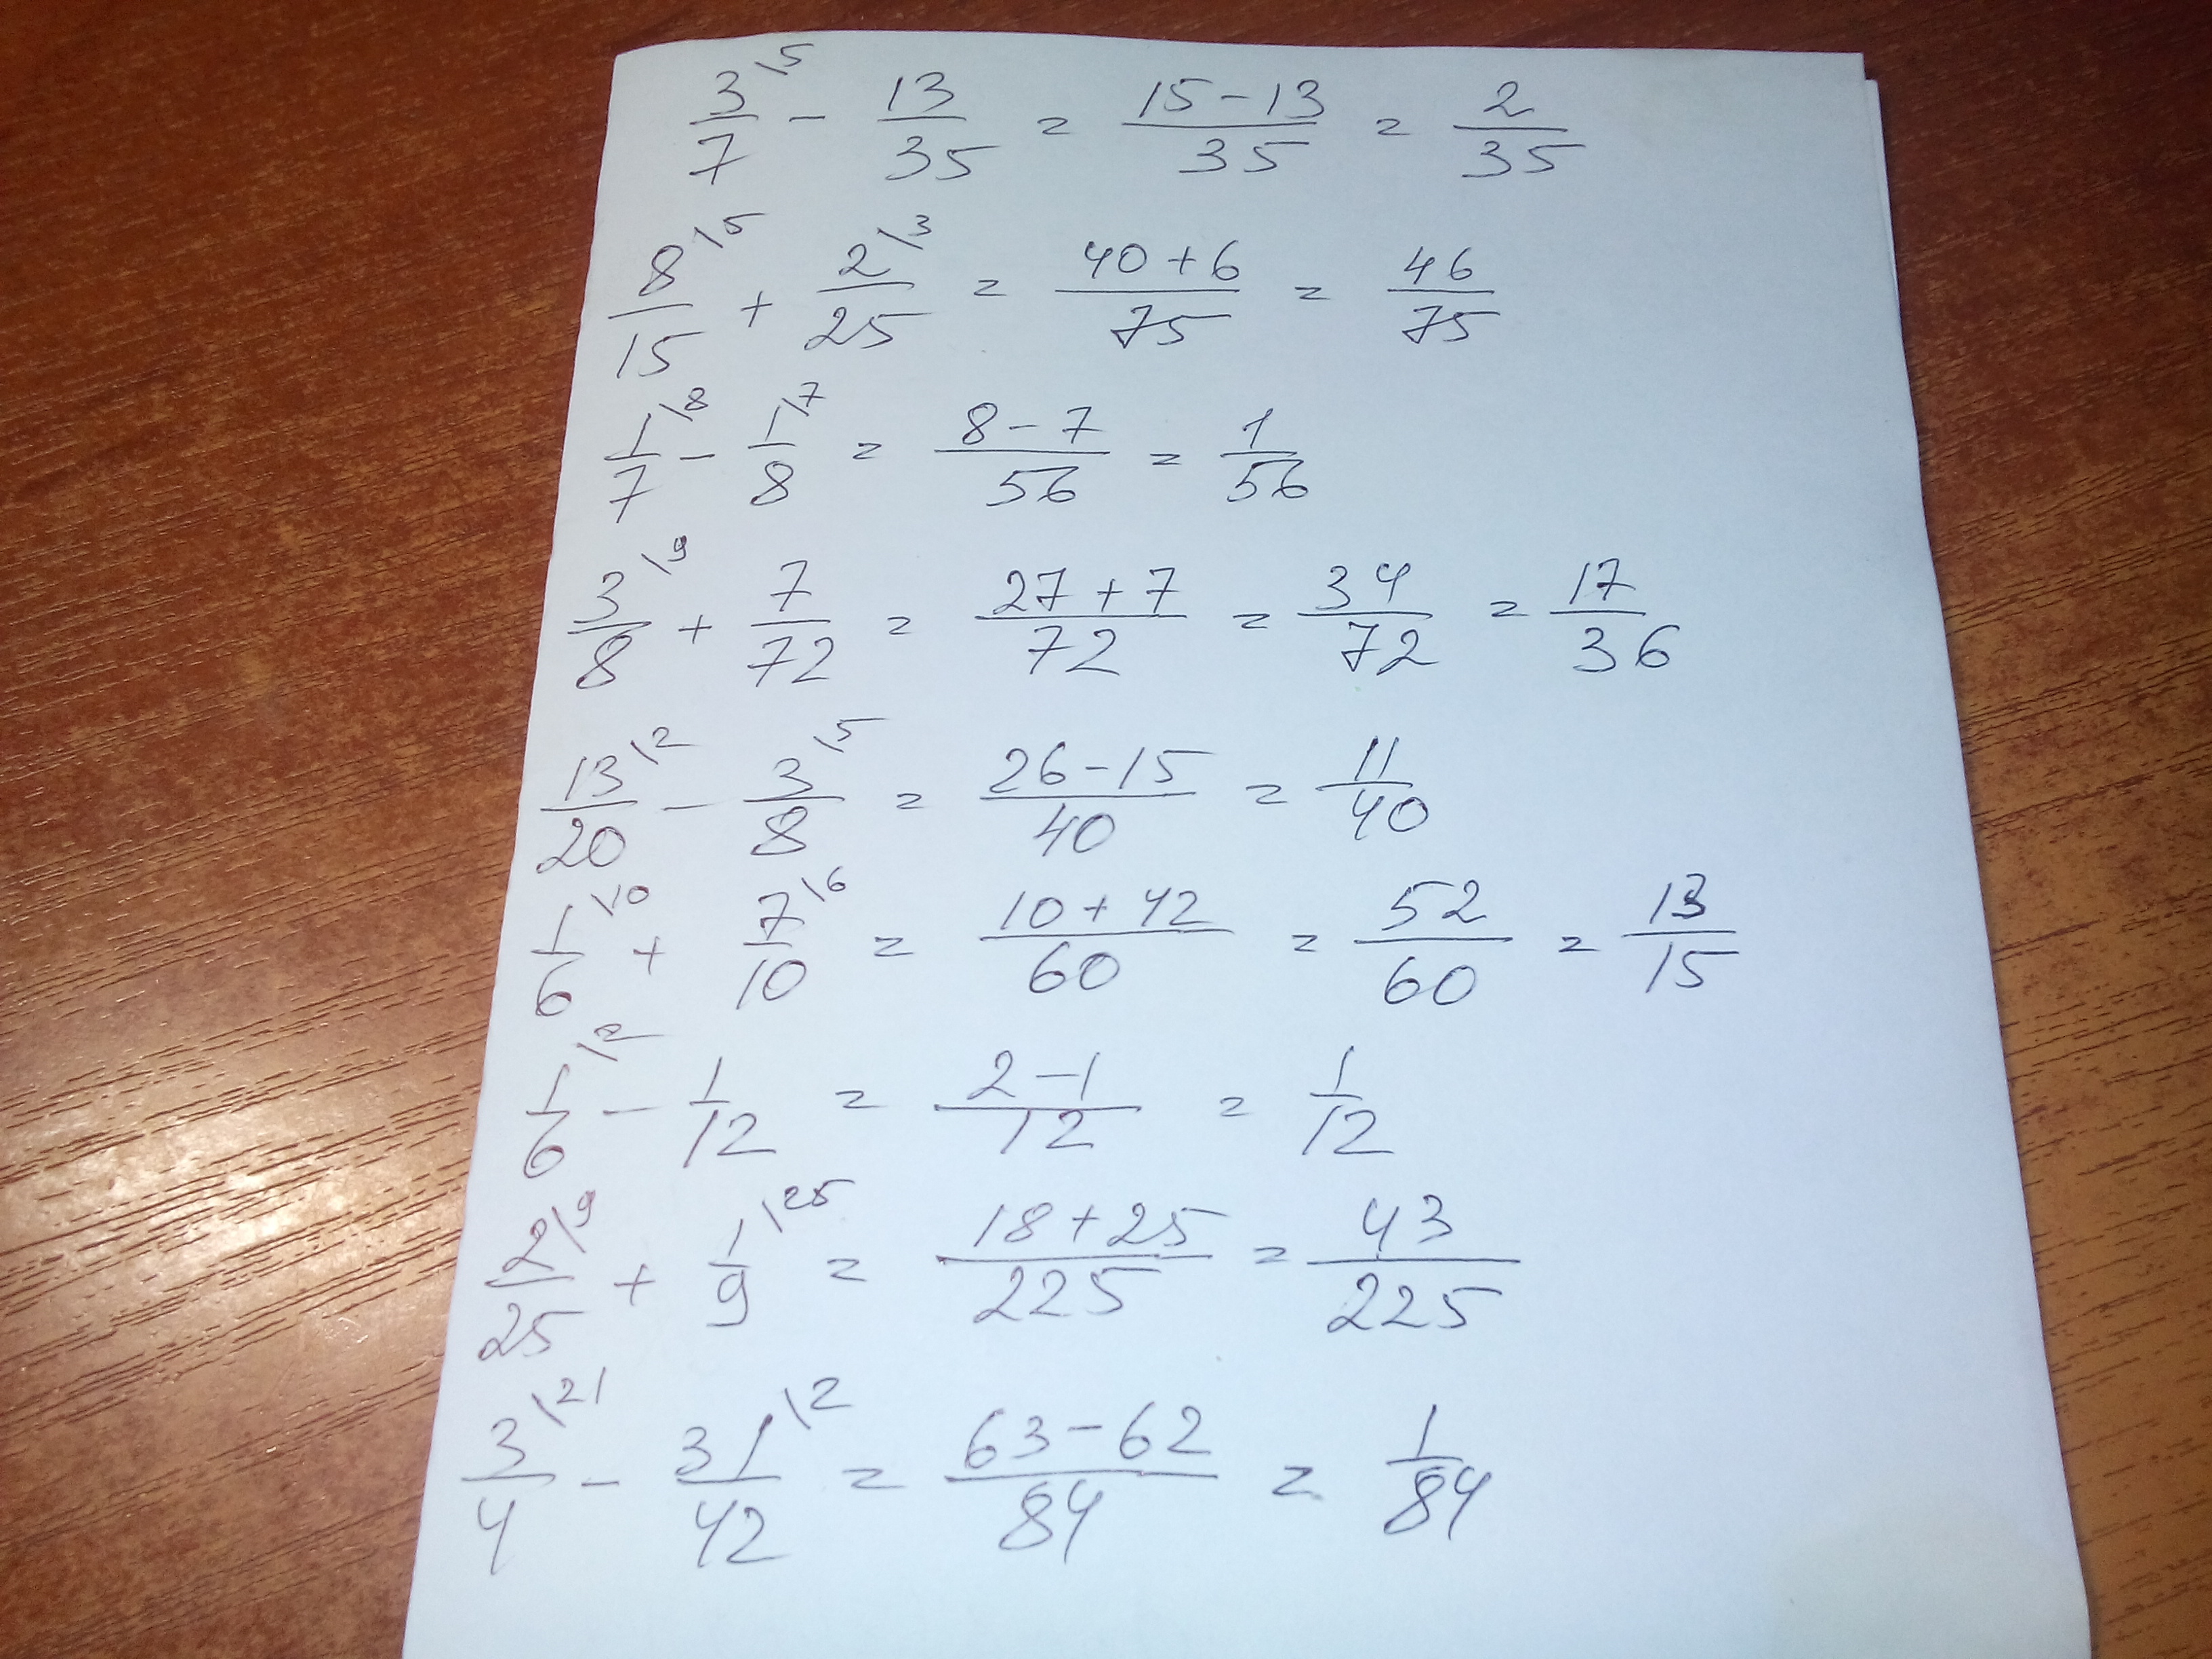 3/7 \5 - 13/35 = (15-13)/35 = 2/35
8/15 \5 + 2/25 \3 = (40+6)/75 = 46/75
1/7 \8 - 1/8 \7 = (8-7)/56 = 1/56
3/8 \9 + 7/72 = (27+7)/72 = 34/72 = 17/36
13/20 \2 - 3/8 \5 = (26-15)/40 = 11/40
1/6 \10 + 7/10 \6 = (10+42)/60 = 52/60 = 13/15
1/6 \2 - 1/12 = (2-1)/12 = 1/12
2/25 \9 + 1/9 \25 = (18+25)/225 = 43/225
3/4 \21 - 31/42 \2 = (63-62)/84 = 1/84